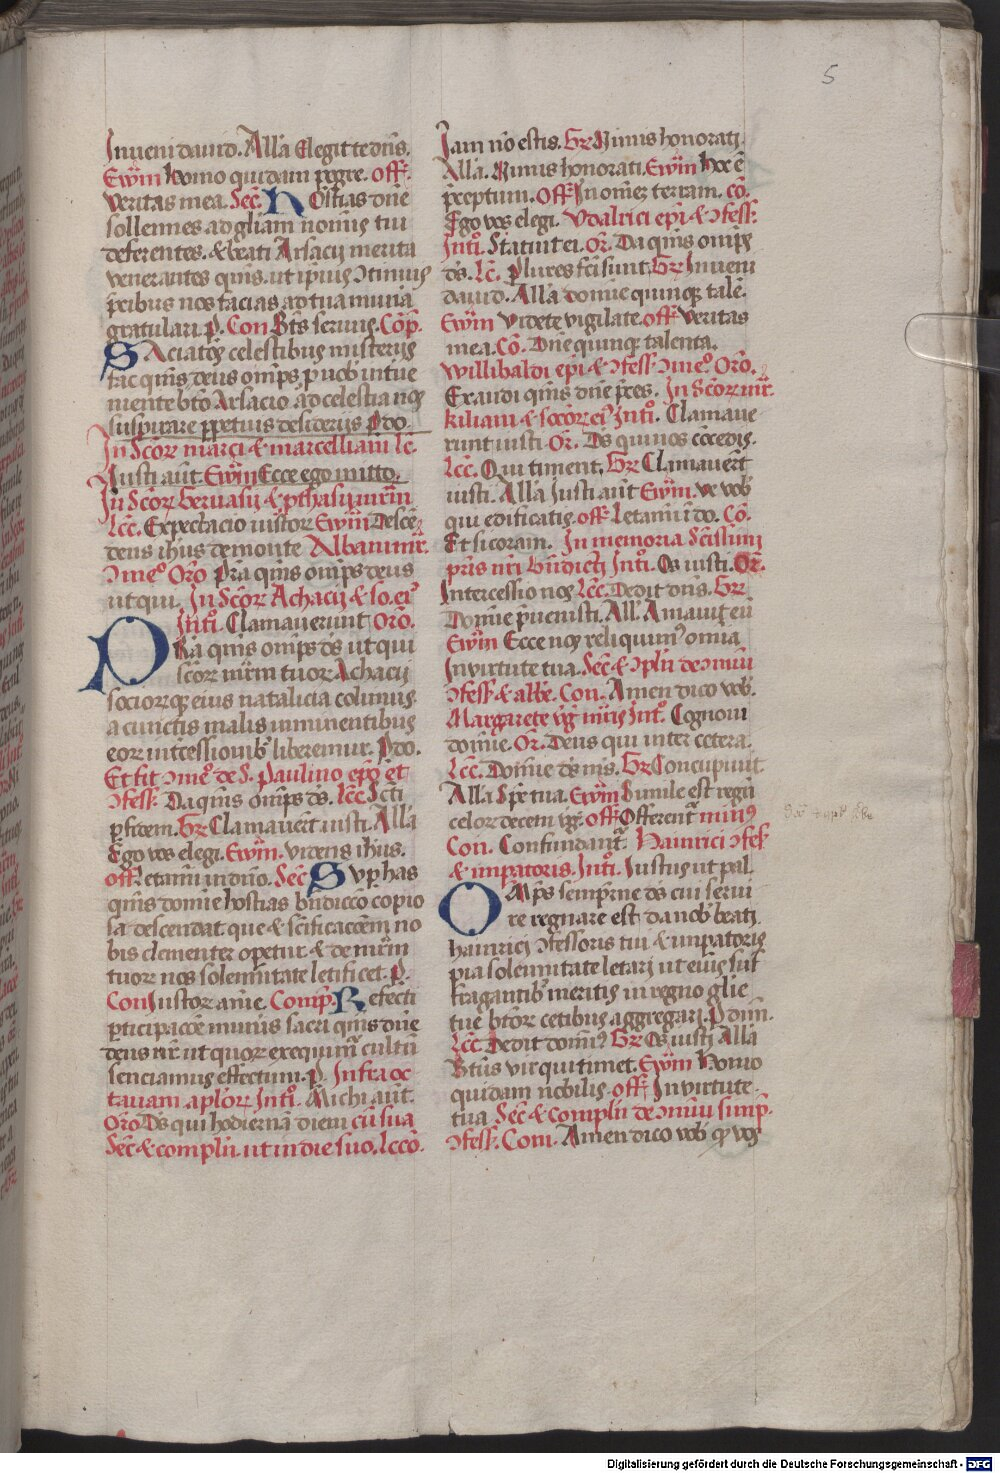 5
Inveni david. Alla Elegit te dns.
Ewm Homo quidam pegre. off.
Veritas mea. Sec. Hostias dne
sollemnes ad gliam nominis tui
deferentes. & beati Arsacij merita
venerantes qms. ut ipius
pcibus nos facias ad tua munia
gratulari. p. Con Bts servus. Cop.
Saciatos celestibus misterijs
fac qms deus omps
niente bto Arsacio ad celestia nos
suspirare ppetuis desiderijs P do.
In Scor marci & marcelliani lc.
Justi aut. Ewm Ecce ego mitto.
In Scor Gervasij & pthasij mrm
Lcc. Expectacio iustor Ewm Desce
deus ihus de monte Albani mr.
Oro Pra qms omps deus
ut qui. In Scor Achacij & so. ei
Into. Clamaverunt Oro.
PRa qms omps ds ut qui
scor mrm tuor Achacij
sociorqz eius natalicia colimus.
a cunctis malis imminentibus
eor intcessionib liberemur. P do.
Et fit de S. Paulino epo et
Da qms omps ds. lcc Scti
p fidem. Gr Clamavert iusti. Alla
Ego vos elegi. Ewm. Videns ihus.
off. etami in dno. Sec Sup has
qms domie hostias bndicco copio
sa descendat que & scificacoem no
bis clementer opetur & de mrm
tuor nos solemnitate letificet. p.
Con Justor anie. Comp. Refecti
pticipacoe muneris sacri qms dne
deus nr ut quor exequimr cultu
senciamus effectum. p. Infra oc
tavam aplor Into. Michi aut.
Oro Ds qui hodierna diem cu sua
Sec & compln. ut in die suo. Lcco.
Jam no estis. Gr Nimis honorati.
Alla. Nimis honorati. Ewm Hoc e
pceptum. Off In omez terram. co.
Ego vos elegi. Vdalrici epi &
Into. Statuit ei. Or. Da qms omps
ds. Lc. Plures fci sunt. Gr Inveni
david. Alla domie quinqz tale.
Ewm Videte vigilate. off Veritas
mea. Co. Dne quinqz talenta.
Willibaldi epi & Oro.
Exaudi qms dne pces. In Scor mr.
kiliani & socor ei Into. Clamave
runt iusti Or. Ds qui nos cocedis.
Lcc. Qui timent. Gr Clamavert
iusti. Alla Justi aut Ewm. Ve vob
qui edificatis. off. Letamini i do. Co.
Et si coram. In memoria Scissimi
pris nri bndicti Into. Os iusti. Or.
Intercessio nos Lcc. Dedit dns. Gr
Domie pvenisti. All. Amavit eu
Ewm Ecce nos reliquim omia
In virtute tua. Sec &
& abbe. Con. Amen dico vob.
Margarete vg mris Into. Cognovi
domie. Or. Deus qui inter cetera.
Lcc. Domie ds ms. Gr Concupivit
Alla Spe tua. Ewm Simile est regn
celor decem vg. off Offerent minor
Con. Confundant. Hainrici
& impatoris. Into. Justus ut pal.
OMps sempne ds cui servi
re regnare est: da nob beati
hainrici tui & impatoris
pia solemnitate letari ut eius suf
fragantib meritis in regno glie
tue btor cetibus aggregari. P dnm.
Lcc. Dedit domi Gr Os iusti Alla
Btus vir qui timet. Ewm Homo
quidam nobilis. off. In virtute
tua Sec & compln de simp.
Com. Amen dico vob qz vos
Digitalisierung gefördert durch die Deutsche Forschungsgemeinschaft - DFG